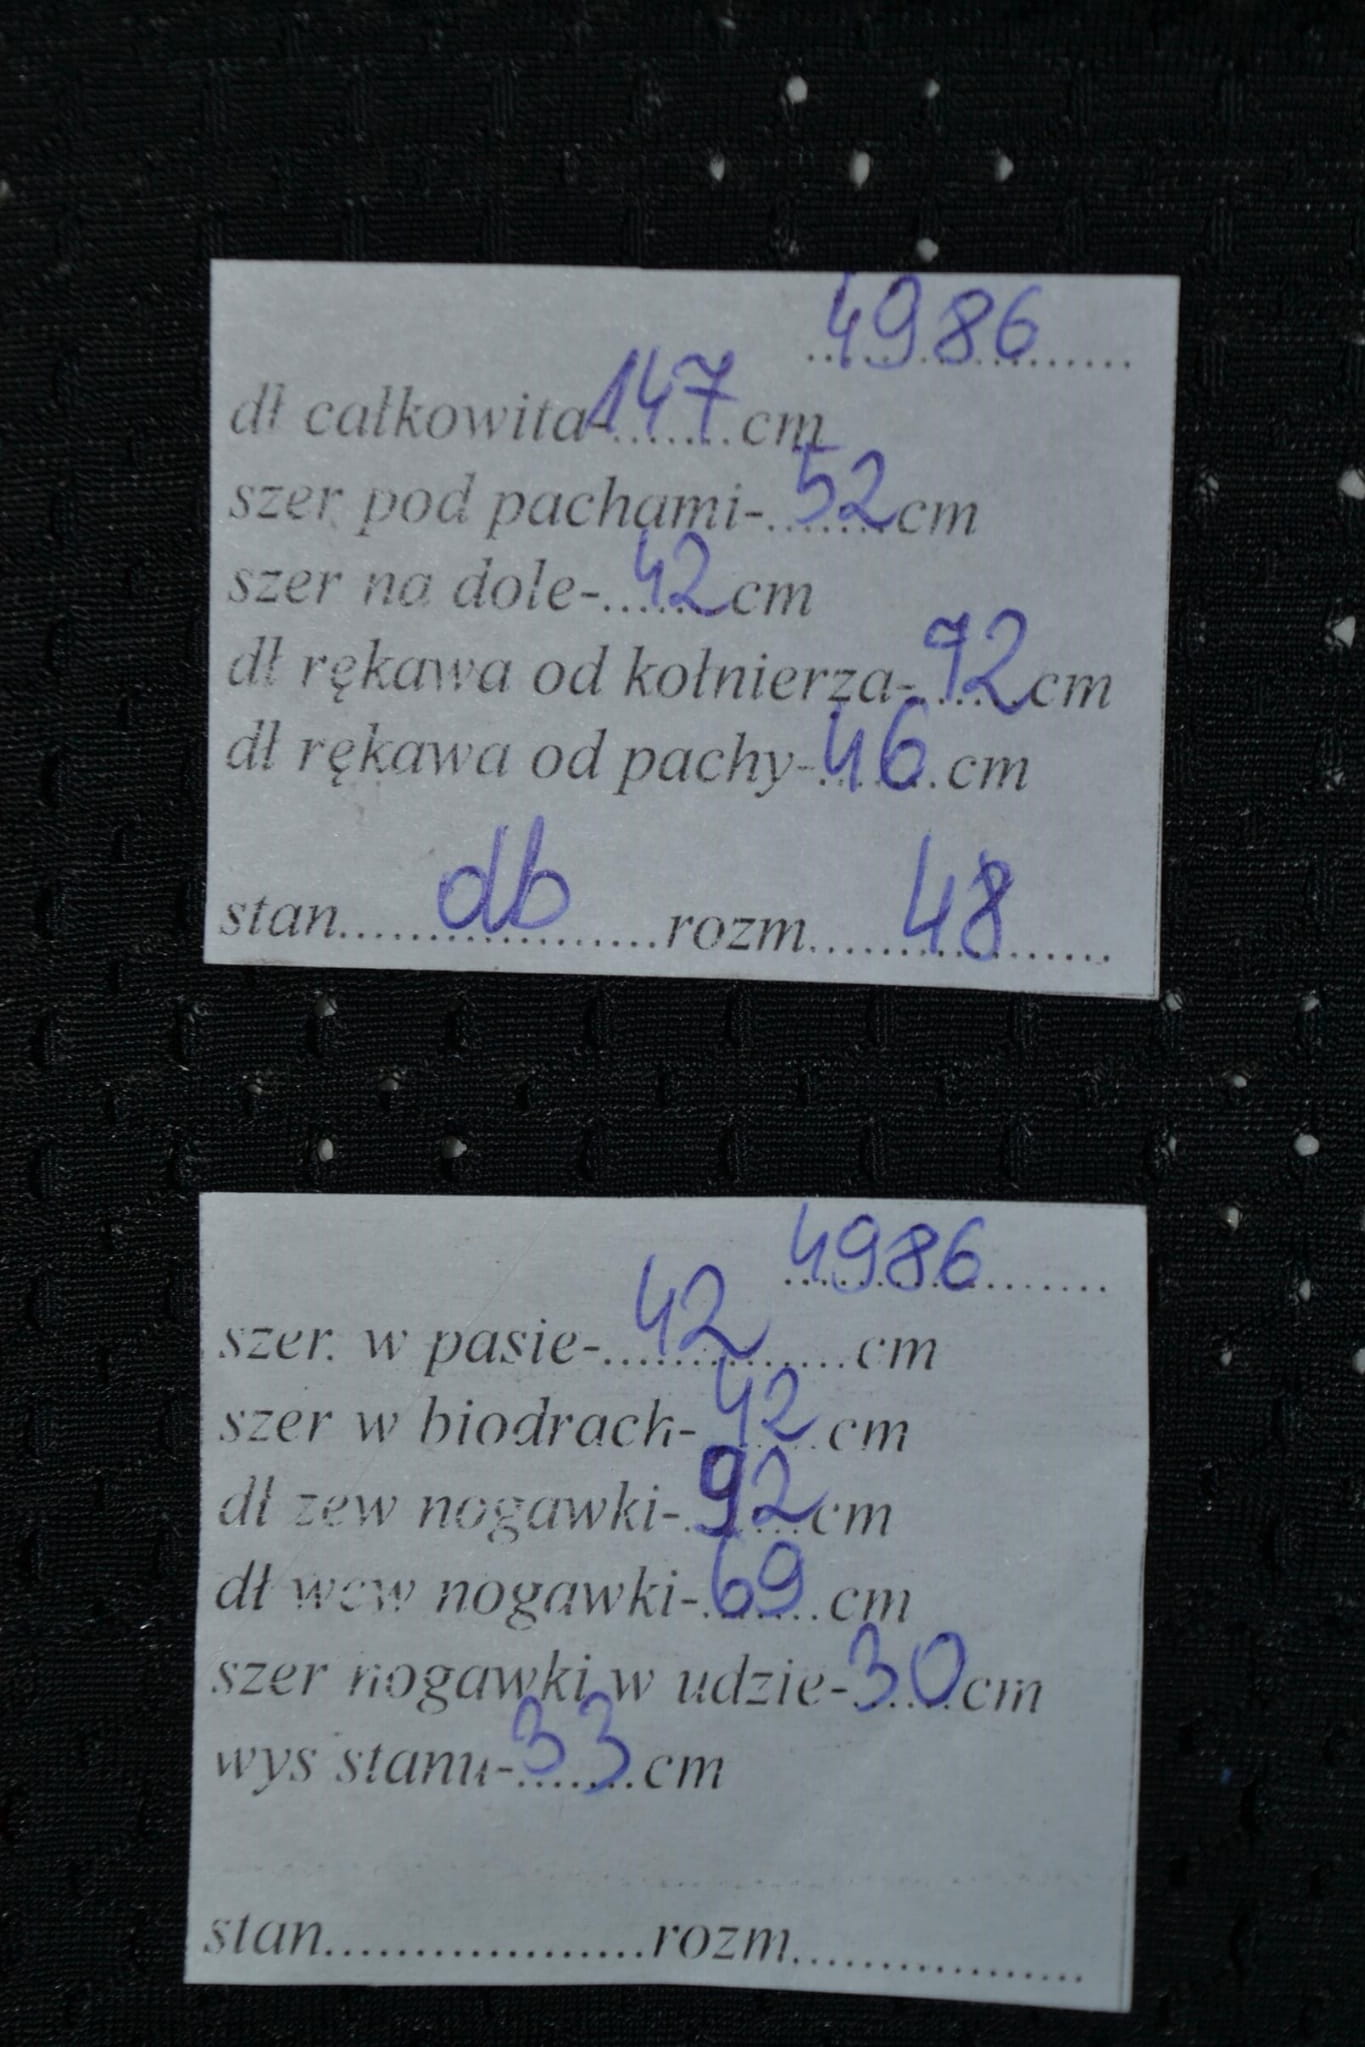 4986
dł całkowita-147cm
szer pod pachami-52cm
szer na dole-42cm
dł rękawa od kołnierza-72cm
dł rękawa od pachy-46cm
stan db rozm 48
4986
szer. w pasie-42 cm
szer w biodrach-42cm
dł zew nogawki-92cm
dł wew nogawki-69cm
szer nogawki w udzie-30cm
wys stanu-33cm
stan..................rozm................